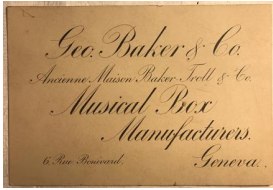 Geo. Baker & Co.
Ancienne Maison Baker-Troll & Co.
Musical Box
Manufacturers.
6. Rue Bonivard. Geneva.